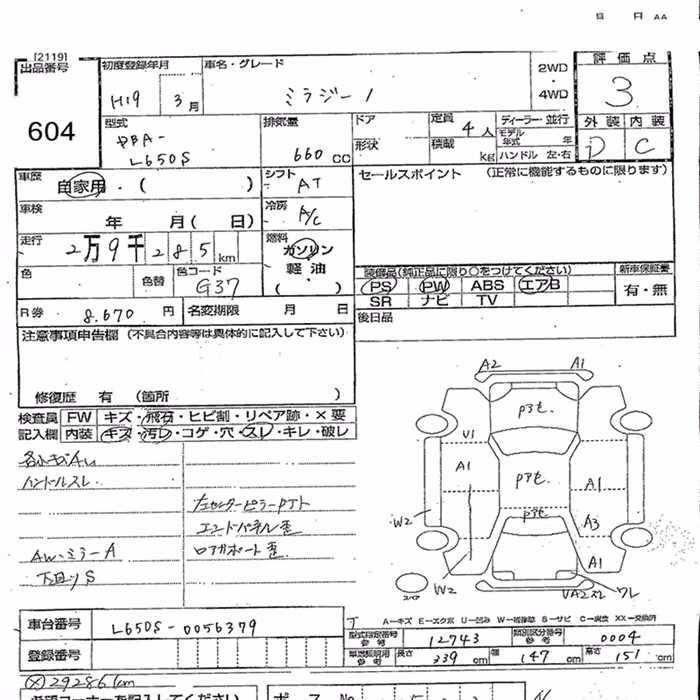 [2119]
出品番号
604
初度登録年月
H19 3月
車名・グレード
ミラジーノ
2WD
4WD
評価点
3
型式
DBA-
L650S
排気量
660 CC
ドア
形状
定員
4人
積載
kg
ディーラー・並行
モデル年式 年
ハンドル 左・右
外装 内装
D C
車歴
自家用・( )
シフト
AT
セールスポイント (正常に機能するものに限ります)
車検
年 月( 日)
冷房
A/C
走行
2万9千285km
燃料
ガソリン
軽油
( )
色
色替
色コード
G37
装備品(純正品に限り○をつけてください)
PS PW ABS エアB
SR ナビ TV
新車保証書
有・無
R券
8,670 円
名変期限 月 日
後日品
注意事項申告欄(不具合内容等は具体的に記入して下さい)
修復歴 有 (箇所 )
検査員
記入欄
FW キズ・飛石・ヒビ割・リペア跡・×要
内装 キズ・汚レ・コゲ・穴・スレ・キレ・破レ
ハンドルスレ
左センターピラーPクト
エンドパネル歪
AW・ミラーA
ロアサポート歪
下回りS
A2 A1
U1
A1
A1
A3
W2
A1
W2
ワレ
スペア
A-キズ E-エクボ U-凹み W-補修跡 S-サビ C-腐食 XX-交換済
車台番号
L650S-0056379
登録番号
型式指定番号
参考
12743
類別区分番号
参考
0004
長さ 339cm 幅 147cm 高さ 151cm
(X)29286km